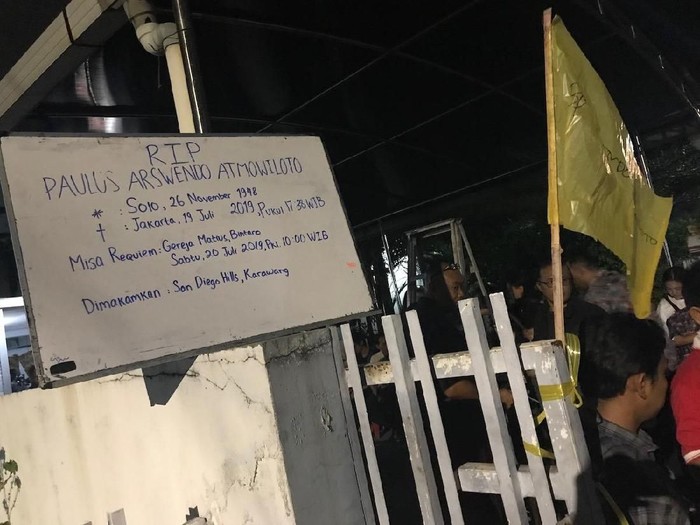 RIP
PAULUS ARSWENDO ATMOWILOTO
* : Solo, 26 November 1948
† : Jakarta, 19 Juli 2019, Pukul 17.38 WIB
Misa Requiem: Gereja Matius, Bintaro
Sabtu, 20 Juli 2019, Pkl. 10:00 WIB
Dimakamkan : San Diego Hills, Karawang